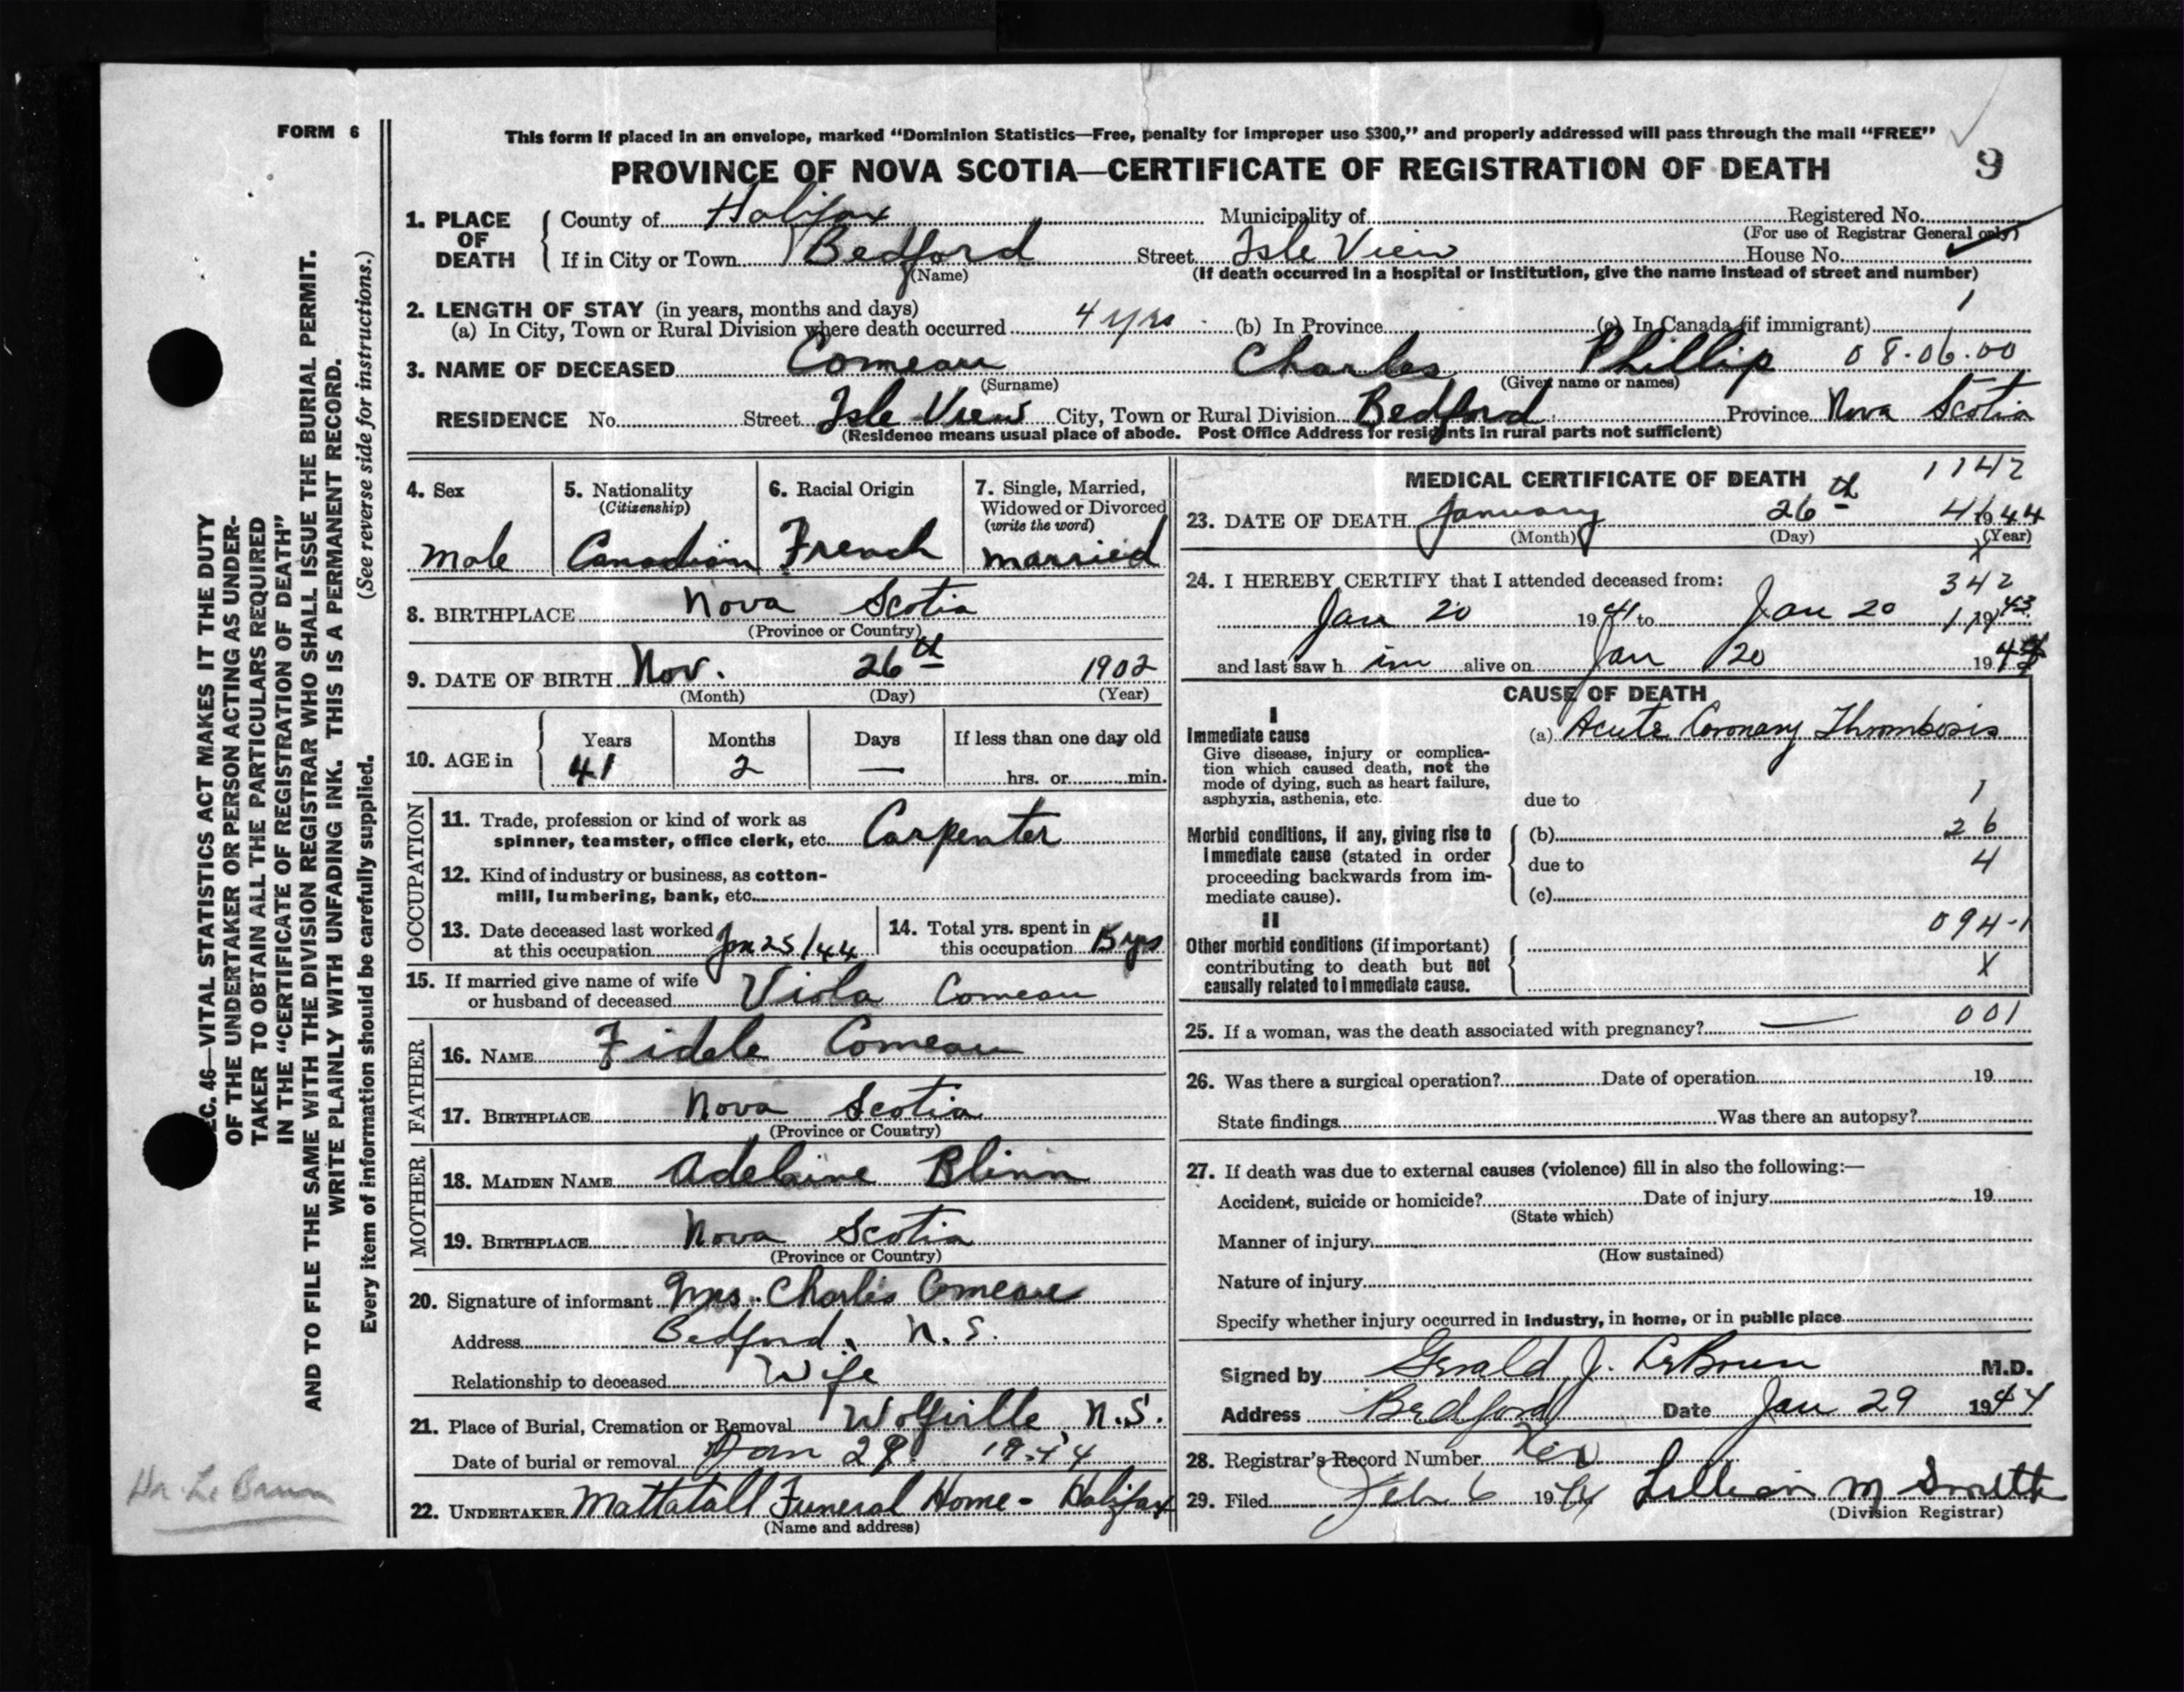 FORM 6
This form if placed in an envelope, marked "Dominion Statistics—Free, penalty for improper use $300," and properly addressed will pass through the mail "FREE"
PROVINCE OF NOVA SCOTIA—CERTIFICATE OF REGISTRATION OF DEATH
9
1. PLACE OF DEATH
County of Halifax Municipality of Registered No.
(For use of Registrar General only)
If in City or Town Bedford Street Isle View House No.
(Name) (If death occurred in a hospital or institution, give the name instead of street and number)
2. LENGTH OF STAY (in years, months and days) 1
(a) In City, Town or Rural Division where death occurred 4 yrs (b) In Province (c) In Canada (if immigrant)
3. NAME OF DECEASED Comeau Charles Phillip 08.06.00
(Surname) (Given name or names)
RESIDENCE No. Street Isle View City, Town or Rural Division Bedford Province Nova Scotia
(Residence means usual place of abode. Post Office Address for residents in rural parts not sufficient)
4. Sex
Male
5. Nationality
(Citizenship)
Canadian
6. Racial Origin
French
7. Single, Married,
Widowed or Divorced
(write the word)
married
8. BIRTHPLACE Nova Scotia
(Province or Country)
9. DATE OF BIRTH Nov. 26th 1902
(Month) (Day) (Year)
10. AGE in
Years Months Days If less than one day old
41 2 — hrs. or min.
OCCUPATION
11. Trade, profession or kind of work as
spinner, teamster, office clerk, etc. Carpenter
12. Kind of industry or business, as cotton-
mill, lumbering, bank, etc.
13. Date deceased last worked
at this occupation Jan 25/44
14. Total yrs. spent in
this occupation 15 yrs
15. If married give name of wife
or husband of deceased Viola Comeau
FATHER
16. NAME Fidele Comeau
17. BIRTHPLACE Nova Scotia
(Province or Country)
MOTHER
18. MAIDEN NAME Adelaine Blinn
19. BIRTHPLACE Nova Scotia
(Province or Country)
20. Signature of informant Mrs. Charlis Comeau
Address Bedford, N.S.
Relationship to deceased Wife
21. Place of Burial, Cremation or Removal Wolfville N.S.
Date of burial or removal Jan 29 1944
22. UNDERTAKER Mattatall Funeral Home - Halifax
(Name and address)
MEDICAL CERTIFICATE OF DEATH 1142
23. DATE OF DEATH January 26th 1944
(Month) (Day) (Year)
24. I HEREBY CERTIFY that I attended deceased from: 342
Jan 20 1941 to Jan 20 1943
and last saw him alive on Jan 20 19
CAUSE OF DEATH
I
Immediate cause
Give disease, injury or complica-
tion which caused death, not the
mode of dying, such as heart failure,
asphyxia, asthenia, etc.
(a) Acute Coronary Thrombosis
due to 1
Morbid conditions, if any, giving rise to
immediate cause (stated in order
proceeding backwards from im-
mediate cause).
(b) 26
due to 4
(c)
II
Other morbid conditions (if important)
contributing to death but not
causally related to immediate cause.
094-1
X
25. If a woman, was the death associated with pregnancy? — 001
26. Was there a surgical operation? Date of operation 19
State findings Was there an autopsy?
27. If death was due to external causes (violence) fill in also the following:—
Accident, suicide or homicide? Date of injury 19
(State which)
Manner of injury
(How sustained)
Nature of injury
Specify whether injury occurred in industry, in home, or in public place
Signed by Gerald J. LeBrun M.D.
Address Bedford Date Jan 29 1944
28. Registrar's Record Number Ten
29. Filed Feb 6 1944 Lillian M Smith
(Division Registrar)
SEC. 46—VITAL STATISTICS ACT MAKES IT THE DUTY
OF THE UNDERTAKER OR PERSON ACTING AS UNDER-
TAKER TO OBTAIN ALL THE PARTICULARS REQUIRED
IN THE "CERTIFICATE OF REGISTRATION OF DEATH"
AND TO FILE THE SAME WITH THE DIVISION REGISTRAR WHO SHALL ISSUE THE BURIAL PERMIT.
WRITE PLAINLY WITH UNFADING INK. THIS IS A PERMANENT RECORD.
Every item of information should be carefully supplied. (See reverse side for instructions.)
Dr. Le Brun